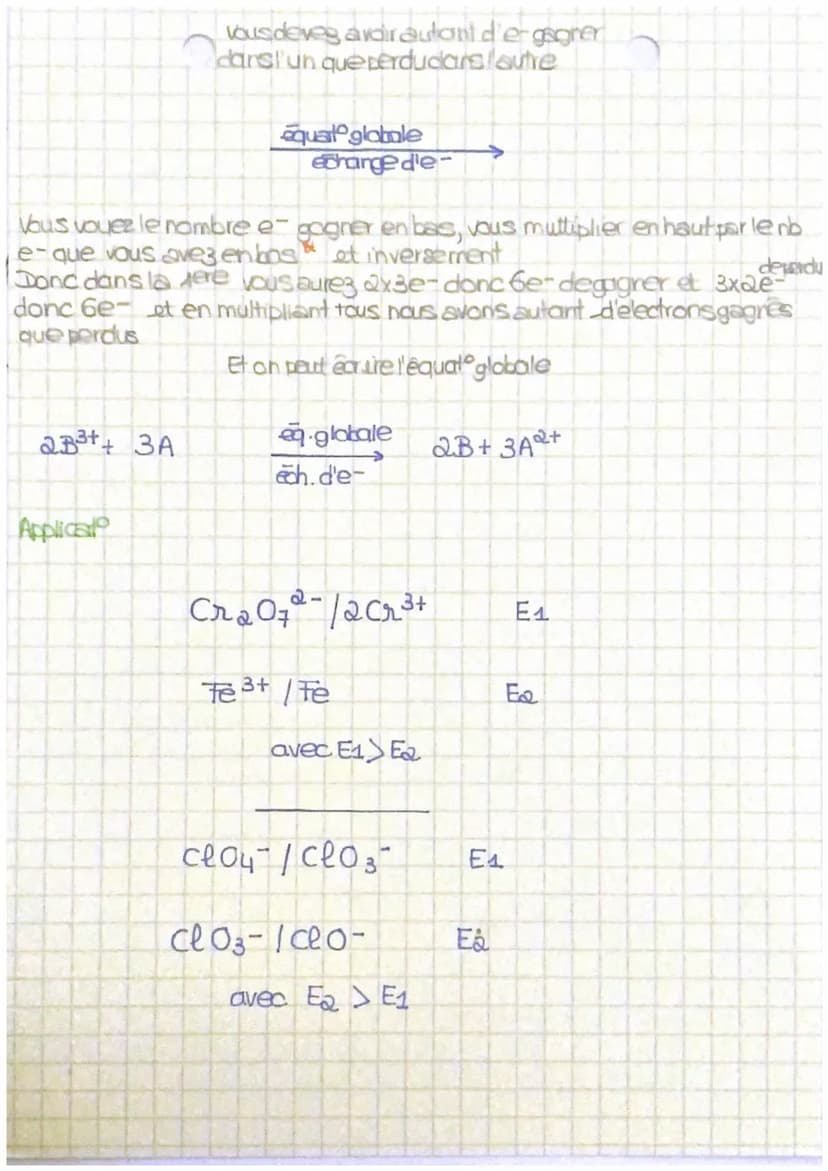 vous devez avoir autant d'e- gagner
dans l'un que perdu dans l'autre
équat° globale
échange d'e-
Vous voyez le nombre e- gagner en bas, vous multiplier en haut par le nb
e- que vous avez en bas et inversement
Donc dans la 1ere vous aurez 2x3e- donc 6e- de gagner et 3x2e- de perdu
donc 6e- et en multipliant tous nous avons autant d'electrons gagnés
que perdus
Et on peut écrire l'équat° globale
2B³⁺ + 3A éq. globale 2B + 3A²⁺
éch. d'e-
Applicat°
Cr₂O₇²⁻ / 2Cr³⁺ E1
Fe³⁺ / Fe E2
avec E1 > E2
ClO₄⁻ / ClO₃⁻ E1
ClO₃⁻ / ClO⁻ E2
avec E2 > E1